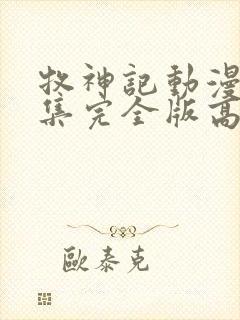 牧神記動漫
集完全版高
歐泰克